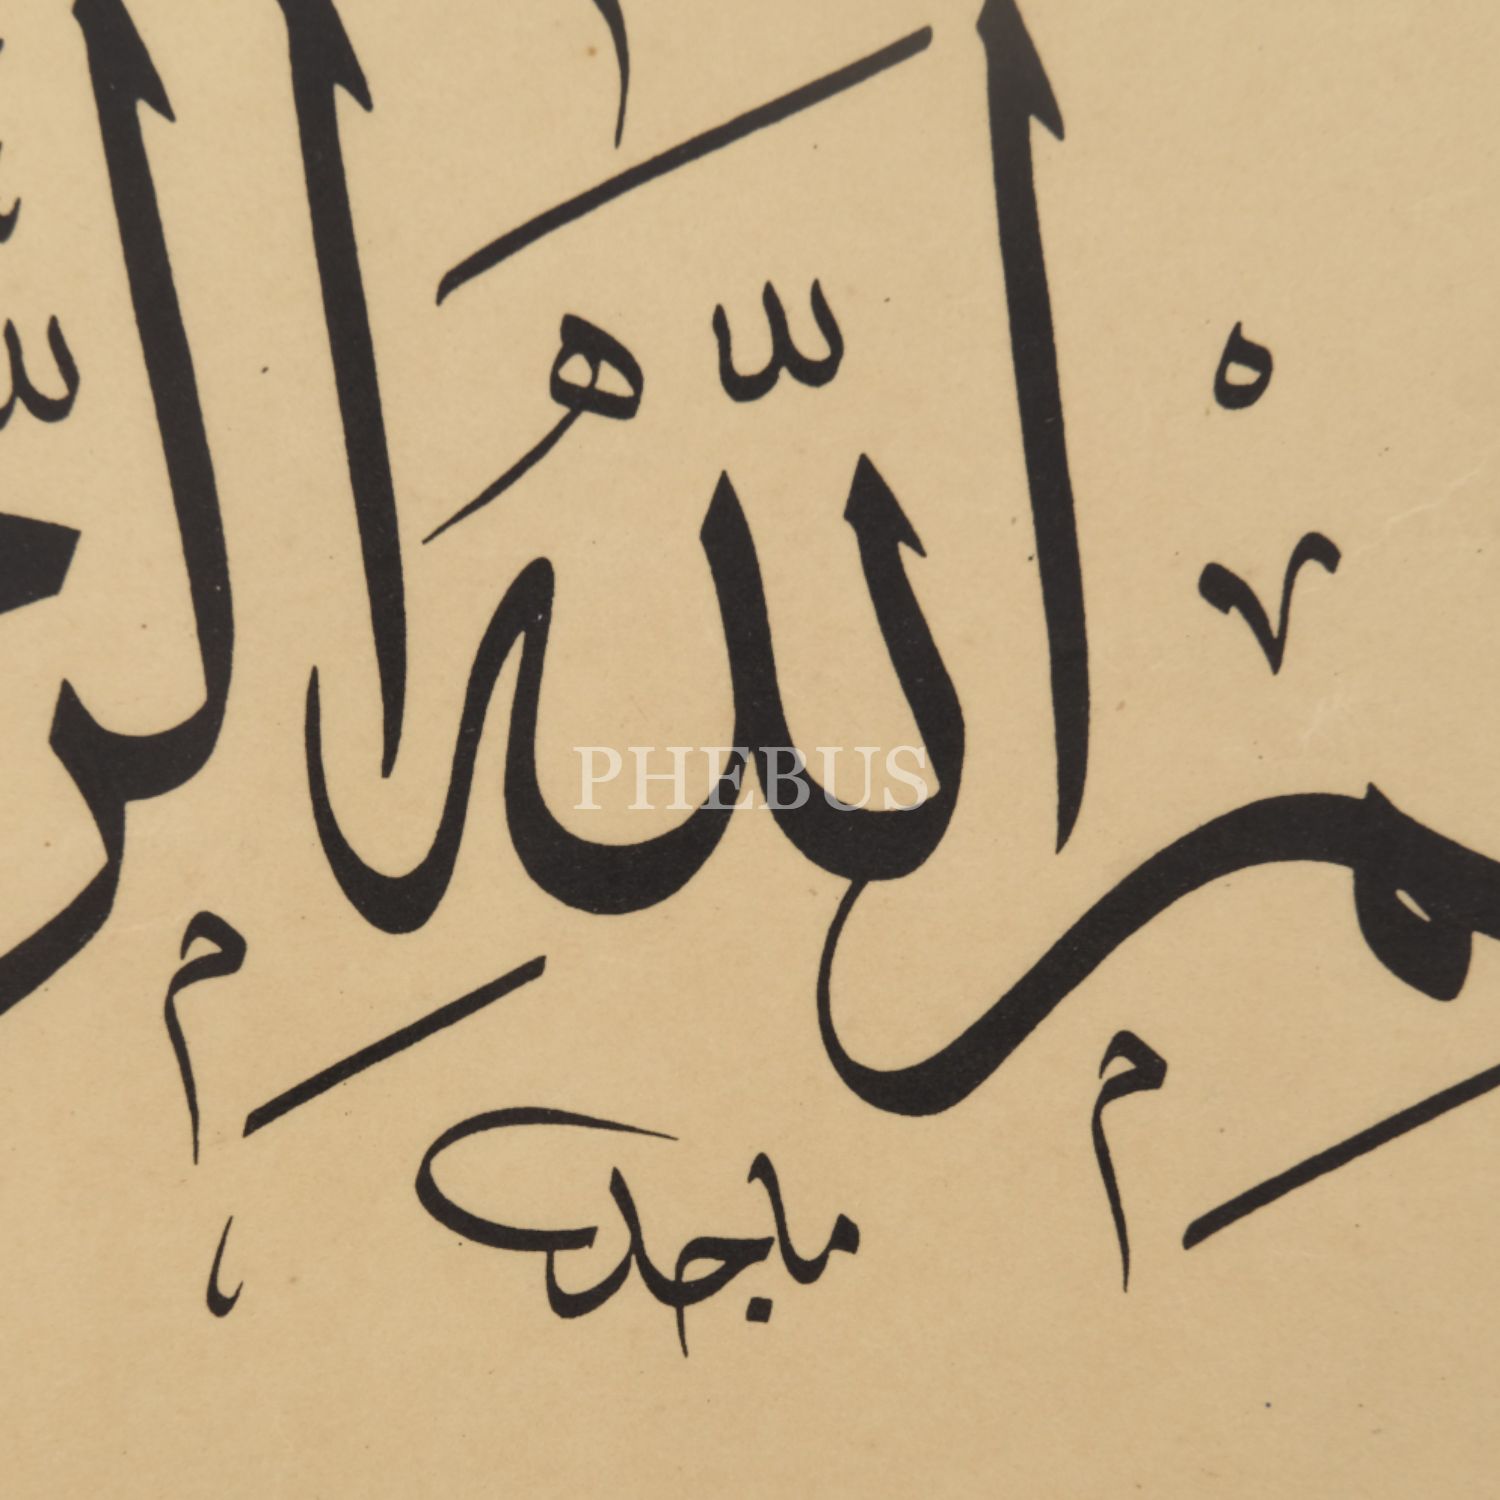 ـم الله الر
ماجد
PHEBUS